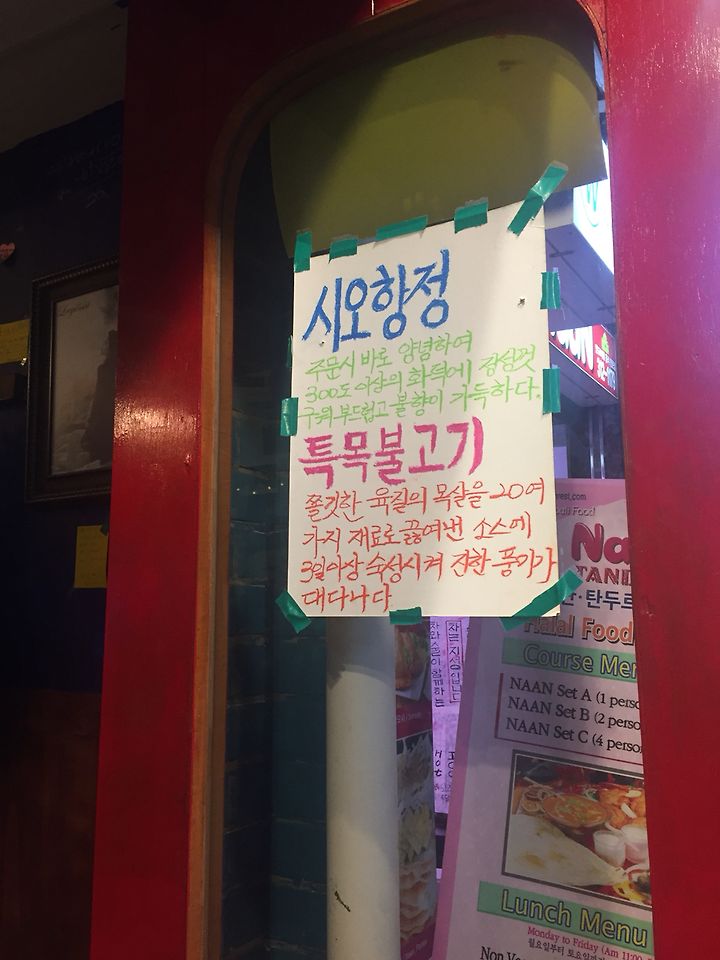 시오항정
주문시 바로 양념하여
300도 이상의 화덕에 감싼것
구워 부드럽고 불향이 가득하다.
특목불고기
쫄깃한 육질의 목살을 20여
가지 재료로 끓여낸 소스에
3일이상 숙성시켜 진한 풍미가
대다나다
Na
TAND
탄두르
Halal Food
Course Menu
NAAN Set A (1 perso
NAAN Set B (2 perso
NAAN Set C (4 perso
Lunch Menu
Monday to Friday (Am 11:00
월요일부터 토요일까지
Non Ve